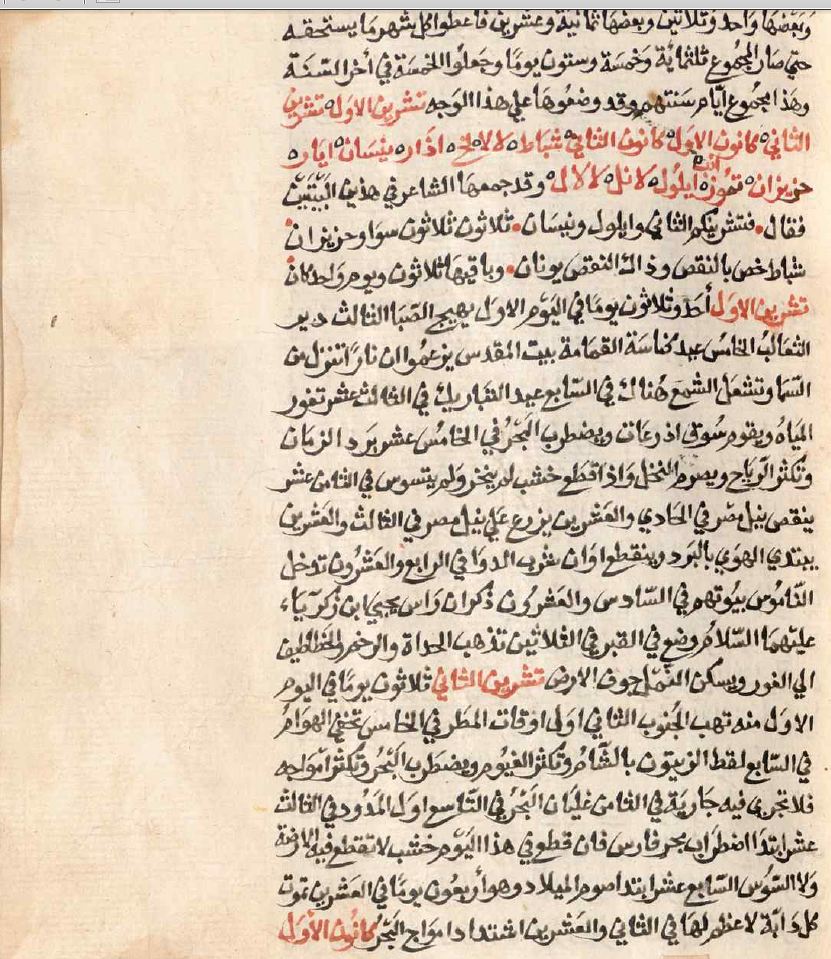 وبعضها واحد وثلاثين وبعضها ثمانية وعشرين فاعطوا كل شهر ما يستحقه
حتي صار المجموع ثلثماية وخمسة وستون يوما وجعلوا الخمسة في اخر السنة
وهذا المجموع ايام سنتهم وقد وضعوها علي هذا الوجه تشرين الاول تشرين
الثاني كانون الاول كانون الثاني شباط لالالح اذار نيسان ايار
حزيران تموز اب ايلول لانل لالال وقد جمعها الشاعر في هذين البيتين
فقال فتشرينكم الثاني وايلول ونيسان ثلاثون ثلاثون سوا وحزيران
شباط خص بالنقص وذاك النقص يونان وباقيها ثلاثون ويوم واحد كان
تشرين الاول أحد وثلاثون يوما في اليوم الاول يهيج الصبا الثالث دير
الثعالب الخامس عيد كناسة القمامة ببيت المقدس يزعموا ان نارا تنزل من
السما وتشعل الشمع هناك في السابع عيد التباريك في الثالث عشر تغور
المياه ويقوم سوق اذرعات ويضطرب البحر في الخامس عشر برد الزمان
وتكثر الرياح ويصرم النخل واذا قطع خشب لم ينخر ولم يتسوس في الثامن عشر
ينقص نيل مصر في الحادي والعشرين يزرع علي نيل مصر في الثالث والعشرين
يبتدي الهوي بالبرد وينقطع اوان شرب الدوا في الرابع والعشرون تدخل
الناموس بيوتهم في السادس والعشرون ذكران راس يحيي ابن زكرياء
عليهما السلام وضع في القبر في الثلاثين تذهب الحداة والرخم والخطاطيف
الي الغور ويسكن النمل جوف الارض تشرين الثاني ثلاثون يوما في اليوم
الاول منه تهب الجنوب الثاني اول اوقات المطر في الخامس تختفي الهوام
في السابع لقط الزيتون بالشام وتكثر الغيوم ويضطرب البحر وتكثر امواجه
فلا تجري فيه جارية في الثامن غليان البحر في التاسع اول المدود في الثالث
عشر ابتدا اضطراب بحر فارس فان قطع في هذا اليوم خشب لا تقطع فيه الارضة
ولا السوس السابع عشر ابتدا صوم الميلاد وهو أربعون يوما في العشرين تموت
كل دابة لا عظم لها في الثاني والعشرين اشتداد امواج البحر كانون الأول